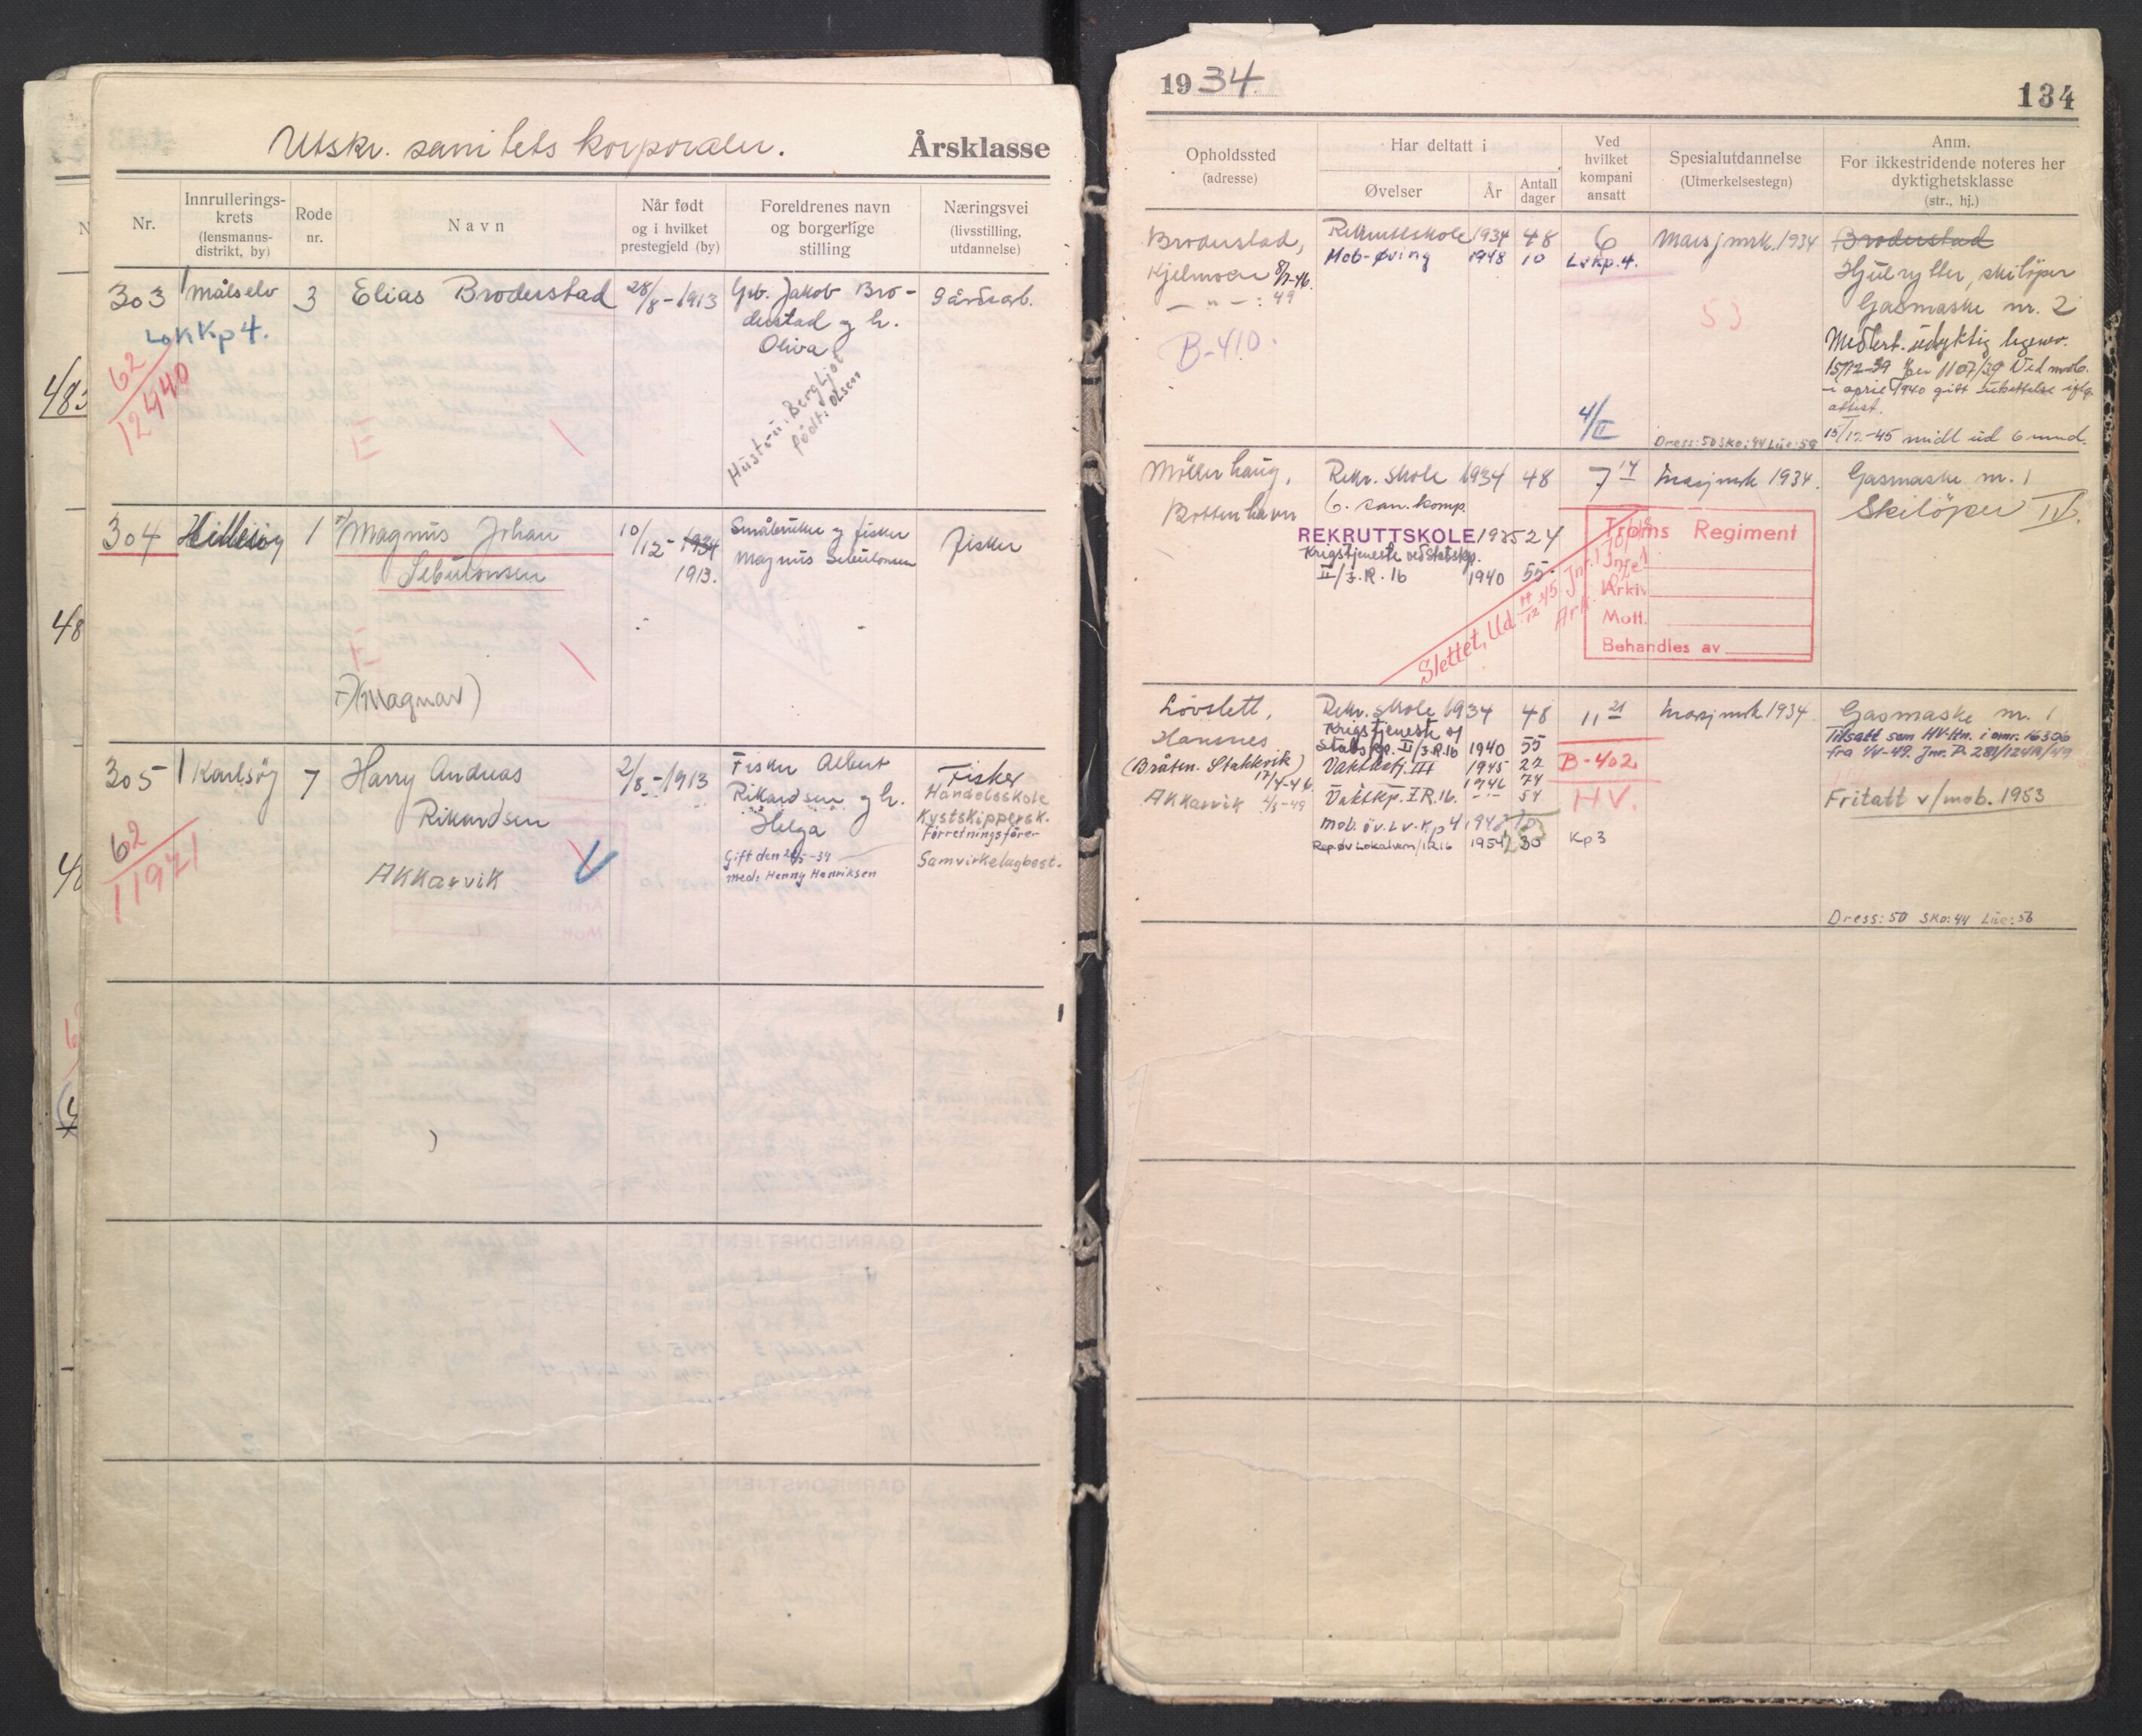 Utskr. sanitets korporaler.
Årsklasse
Nr.
Innrullerings-
krets
(lensmanns-
distrikt, by)
Rode
nr.
Navn
Når født
og i hvilket
prestegjeld (by)
Foreldrenes navn
og borgerlige
stilling
Næringsvei
(livsstilling,
utdannelse)
303
Målselv
3
Elias Broderstad
28/8-1913
Gpb. Jakob Bro-
derstad og h.
Oliva
Hustru: Bergljot
født: Olsen
gårdsarb.
LokKp 4.
62
12440
E
304
Hillesøy
1
Magnus Johan
Sebulonsen
(Magnar)
10/12-1934
1913.
Småbruker og fisker
Magnus Sebulonsen
Fisker
305
Karlsøy
7
Harry Andreas
Rikardsen
Akkarvik
2/8-1913
Fisker Albert
Rikardsen og h.
Helga
Gift den 20/5-34
med: Henny Henriksen
Fisker
Handelsskole
Kystskippersk.
Forretningsfører
Samvirkelagbest.
62
11921
1934
134
Opholdssted
(adresse)
Har deltatt i
Øvelser
År
Antall
dager
Ved
hvilket
kompani
ansatt
Spesialutdannelse
(Utmerkelsestegn)
Anm.
For ikkestridende noteres her
dyktighetsklasse
(str., hj.)
Broderstad,
Kjelmoen 8/7-46.
— " — : 49
B-410.
Rekruttskole 1934 48
Mob-øving 1948 10
6
Lvkp. 4.
4/II
Marsjmrk. 1934
53
Dress: 50 Sko: 44 Lue: 59
Broderstad
Hjulrytter, skiløper
Gasmaske nr. 2
15/12-39
i april 1940 gitt utsettelse iflg.
attest.
15/12-45 midl ud 6 mnd.
Møllerhaug,
Bottenhavn
Rekr. skole 1934 48
6. san. komp.
REKRUTTSKOLE 1935 24
Krigstjeneste ved Stabskp.
II/I.R. 16 1940 55
7 14
Marsjmrk 1934.
Gasmaske nr. 1
Skiløper IV.
Slettet, Ud.
Troms Regiment
Jnr.
Arkiv
Mott.
Behandles av
Løvslett,
Hansnes
(Bråten. Stakkvik)
17/4-46
Akkarvik 4/3-49
Rekr. skole 1934 48
Krigstjeneste v/
Stabskp. II/I.R.16 1940 55
1945 22
1946 74
Vaktkp. I.R.16. - " - 54
Mob. øv. Lv. Kp 4 1948
Rep øv Lokalvern/IR16 1954 30
11 21
B-402
HV.
Kp 3
Marsjmrk 1934.
Gasmaske nr. 1
Tilsatt som HV-
fra 1/4-49.
Fritatt v/mob. 1953
Dress: 50 Sko: 44 Lue: 56